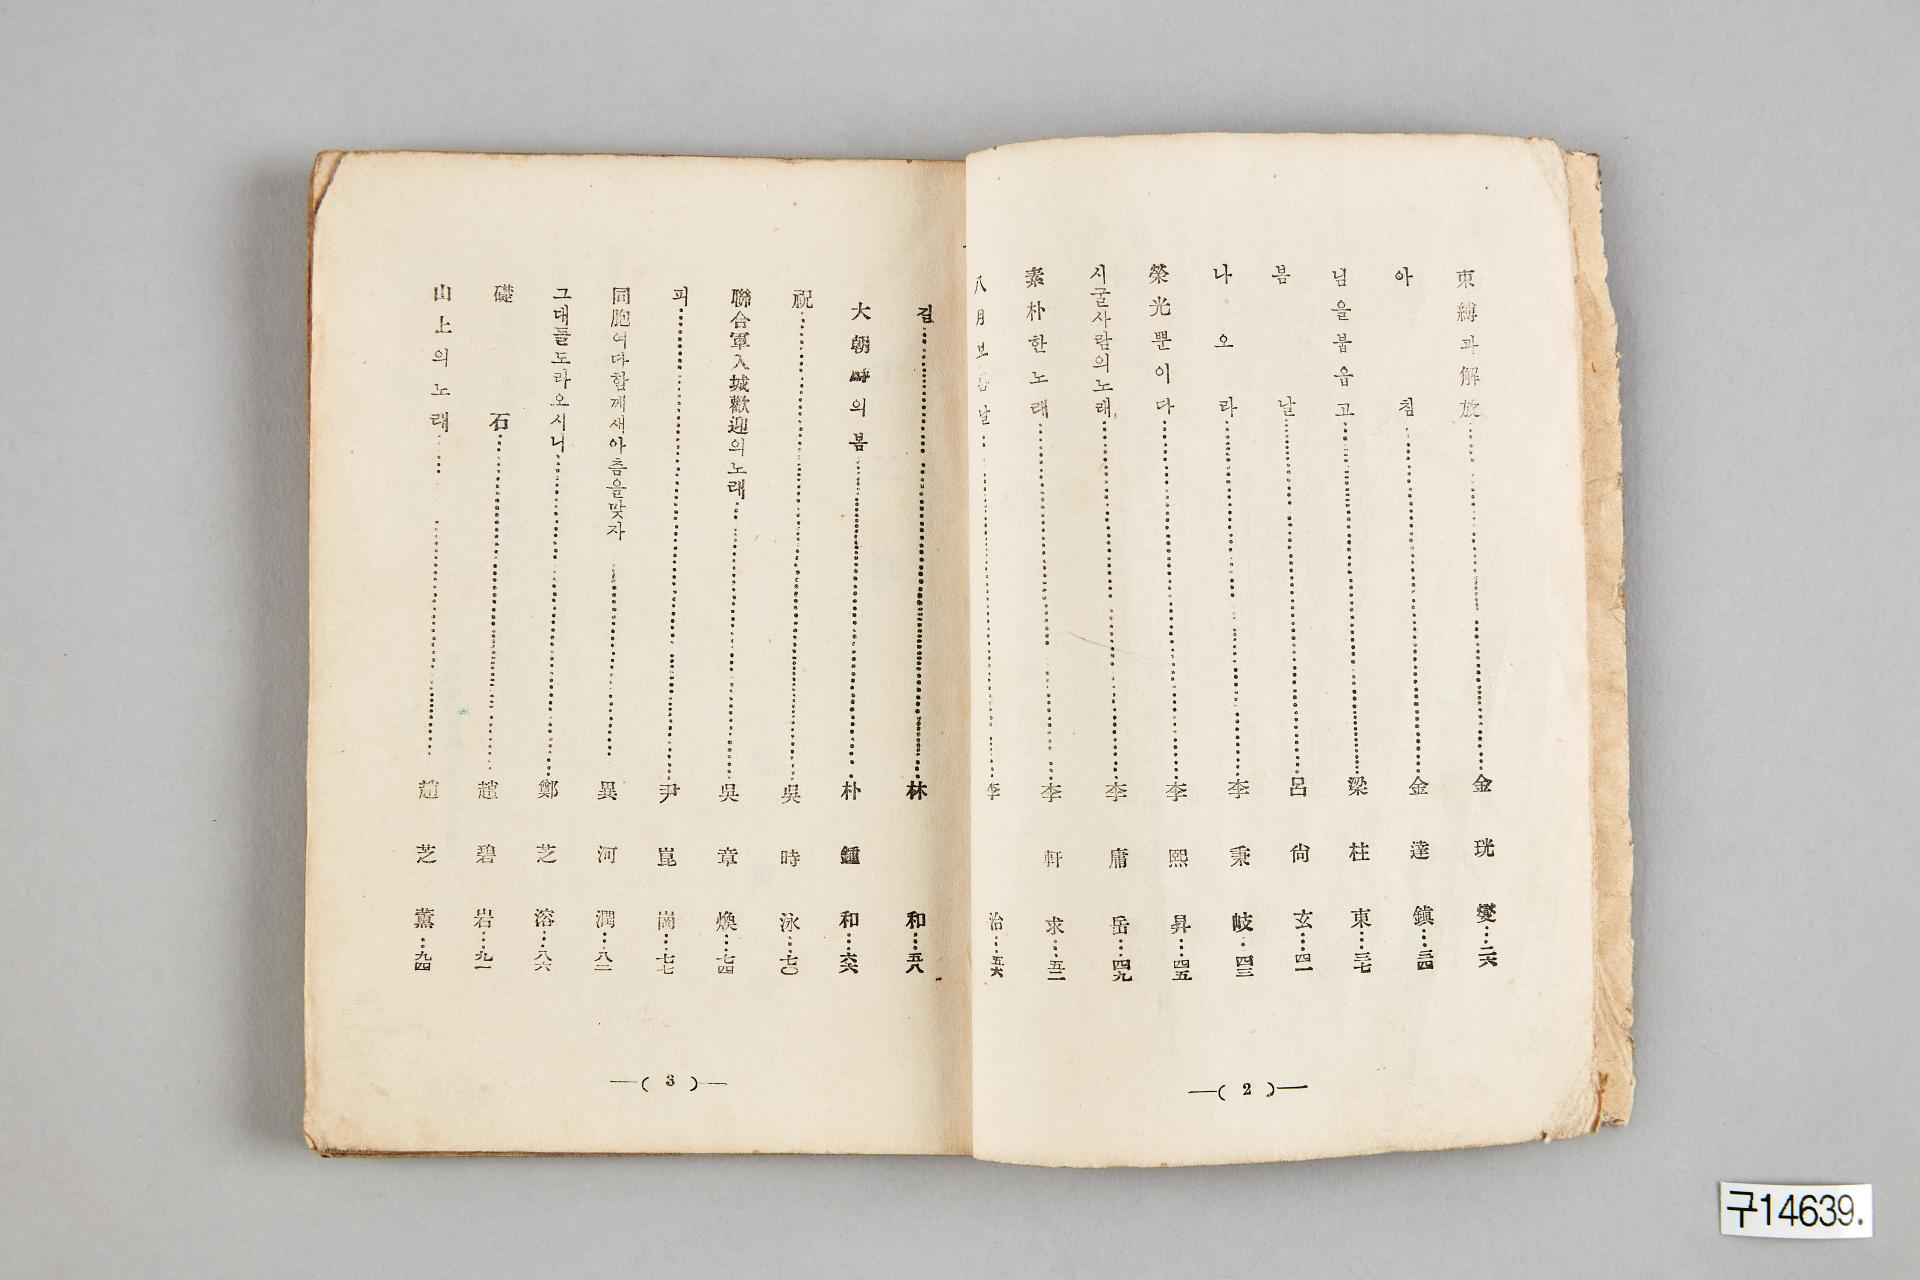 束縛과解放 金珖燮 二六
아침 金達鎭 三四
님을붑음고 梁柱東 三七
봄날 呂尙玄 四一
나오라 李秉岐 四三
榮光뿐이다 李熙昇 四五
시굴사람의노래 李庸岳 四九
素朴한노래 李軒求 五二
八月보름날 李治 五六
—( 2 )—
길 林和 五八
大朝鮮의봄 朴鍾和 六六
祝 吳時泳 七〇
聯合軍入城歡迎의노래 吳章煥 七四
피 尹崑崗 七七
同胞여다함께새아츰을맞자 異河潤 八二
그대들도라오시니 鄭芝溶 八六
礎石 趙碧岩 九一
山上의노래 趙芝薰 九四
—( 3 )—
구14639.